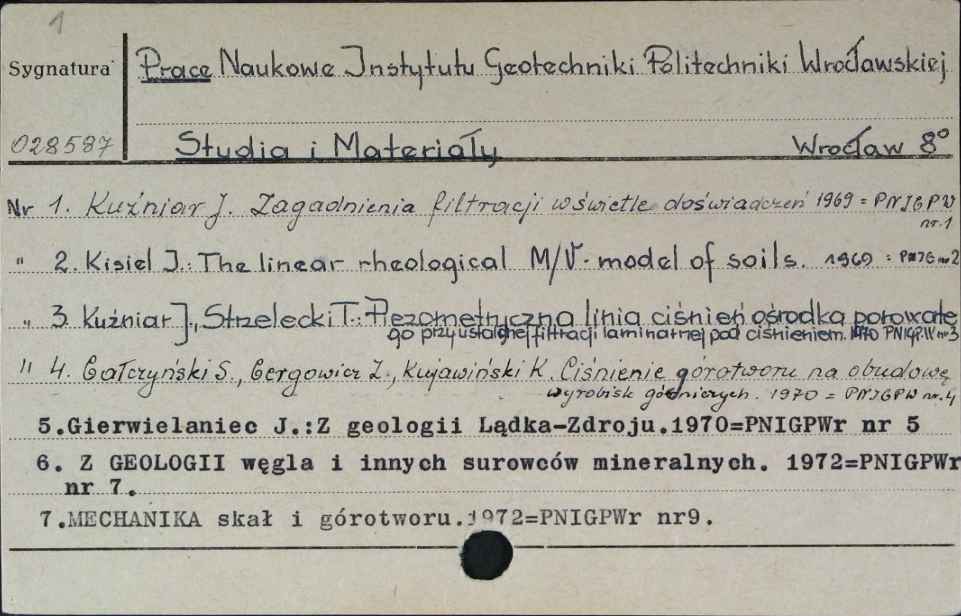 1
Sygnatura Prace Naukowe Instytutu Geotechniki Politechniki Wrocławskiej
028587 Studia i Materiały Wrocław 8°
Nr 1. Kuźniar J. Zagadnienia filtracji w świetle doświadczeń 1969 = PNIGPW
nr. 1
" 2. Kisiel J.: The linear rheological M/V - model of soils. 1969 = PNIG nr 2
" 3. Kuźniar J., Strzelecki T.: Piezometryczna linia ciśnień ośrodka porowate
go przy ustalonej filtracji laminarnej pod ciśnieniem. 1970 PNIGP.W nr 3
" 4. Gałczyński S., Gergowicz Z., Kujawiński K. Ciśnienie górotworu na obudowę
wyrobisk górniczych. 1970 = PNIGPW nr. 4
5.Gierwielaniec J.:Z geologii Lądka-Zdroju.1970=PNIGPWr nr 5
6. Z GEOLOGII węgla i innych surowców mineralnych. 1972=PNIGPWr
nr 7.
7.MECHANIKA skał i górotworu.1972=PNIGPWr nr9.